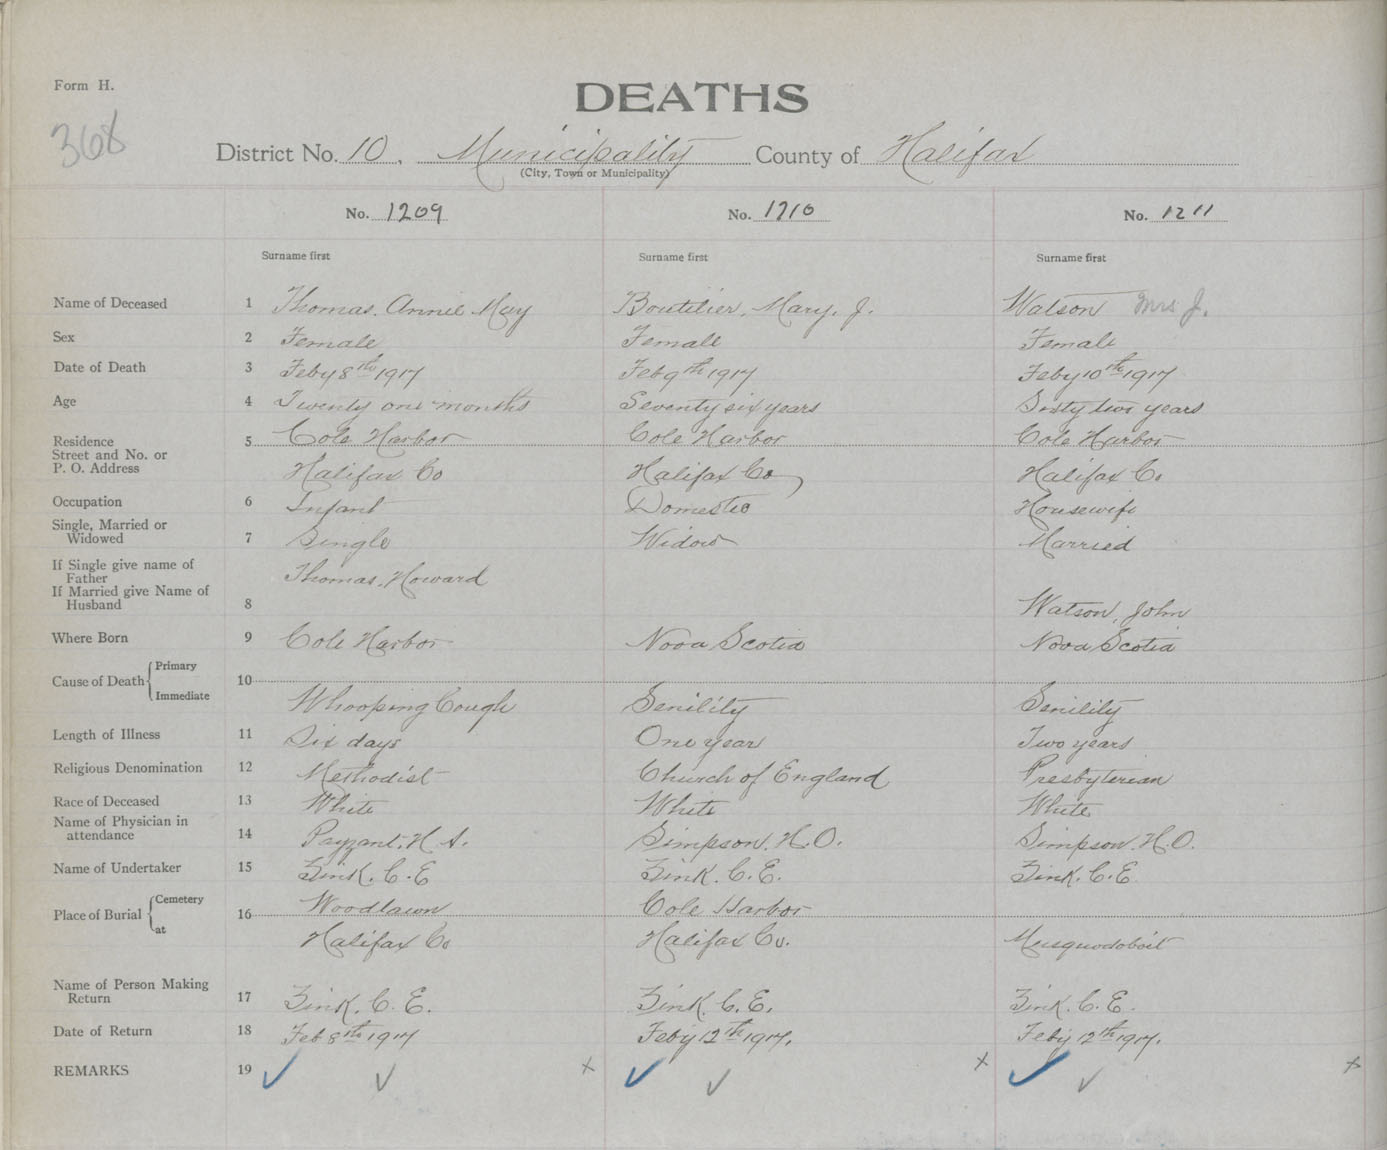 Form H.
DEATHS
368
District No. 10, Municipality County of Halifax
(City, Town or Municipality)
No. 1209 No. 1210 No. 1211
Surname first Surname first Surname first
Name of Deceased 1 Thomas, Annie May Boutilier, Mary, J. Watson Mrs J.
Sex 2 Female Female Female
Date of Death 3 Feby 8th 1917 Feb 9th 1917 Feby 10th 1917
Age 4 Twenty one months Seventy six years Sixty two years
Residence 5 Cole Harbor Cole Harbor Cole Harbor
Street and No. or
P. O. Address Halifax Co Halifax Co Halifax Co
Occupation 6 Infant Domestic Housewife
Single, Married or
Widowed 7 Single Widow Married
If Single give name of
Father Thomas, Howard
If Married give Name of
Husband 8 Watson, John
Where Born 9 Cole Harbor Nova Scotia Nova Scotia
Cause of Death Primary 10
Immediate Whooping Cough Senility Senility
Length of Illness 11 Six days One year Two years
Religious Denomination 12 Methodist Church of England Presbyterian
Race of Deceased 13 White White White
Name of Physician in
attendance 14 Payzant, H. A. Simpson, H. O. Simpson, H. O.
Name of Undertaker 15 Zink. C. E Zink. C. E. Zink. C. E
Place of Burial Cemetery 16 Woodlawn Cole Harbor
at Halifax Co Halifax Co. Musquodoboit
Name of Person Making
Return 17 Zink. C. E. Zink. C. E. Zink. C. E.
Date of Return 18 Feb 8th 1917 Feby 12th 1917. Feby 12th 1917.
REMARKS 19 ✓ ✓ x ✓ ✓ x ✓ ✓ x